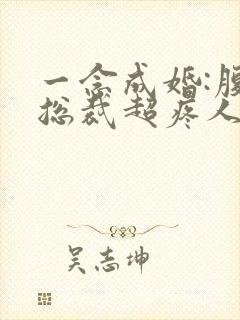 一念成婚:腹
总裁超疼人
吴志坤